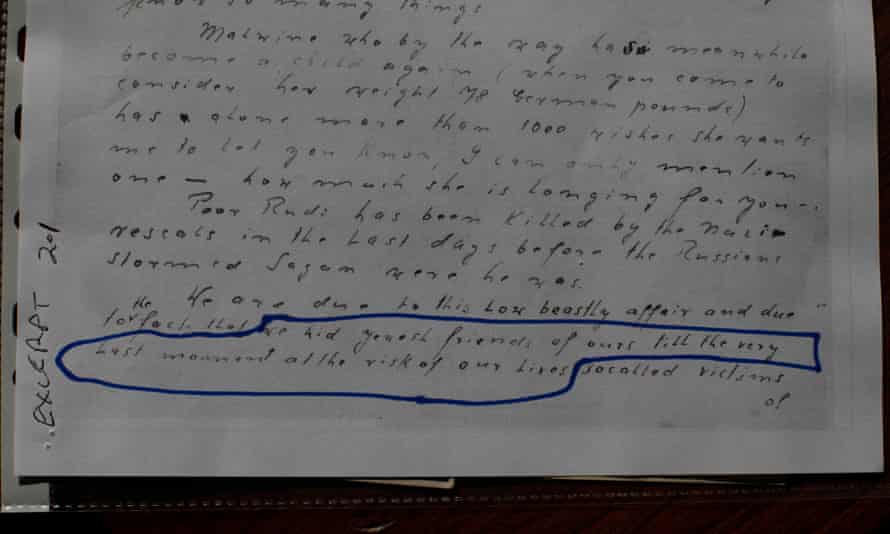 so many things
Malwine who by the way has meanwhile
become a child again (when you come to
consider her weight 78 German pounds)
has alone more than 1000 wishes she wants
me to let you know, I can only mention
one — how much she is longing for you -.
Poor Rudi has been killed by the Nazi
rescals in the last days before the Russians
stormed Sagan were he was.
We are due to this low beastly affair and due
to the fact that we hid yewish friends of ours till the very
last moment at the risk of our lives socalled victims
of
..EXCERPT 201